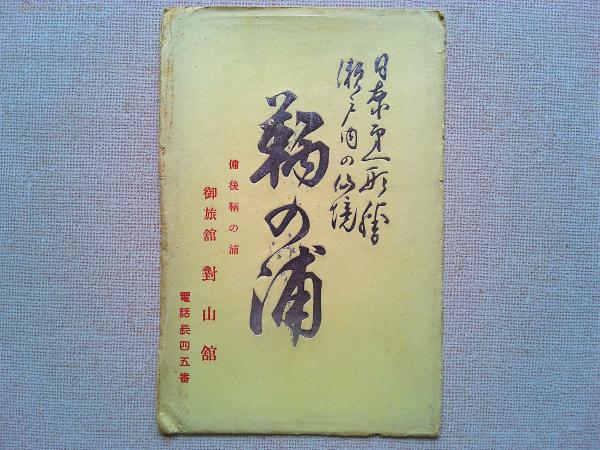 日東第一形勝
瀬戸内の仙境
鞆の浦
備後鞆の浦
御旅舘 對山舘
電話長四五番